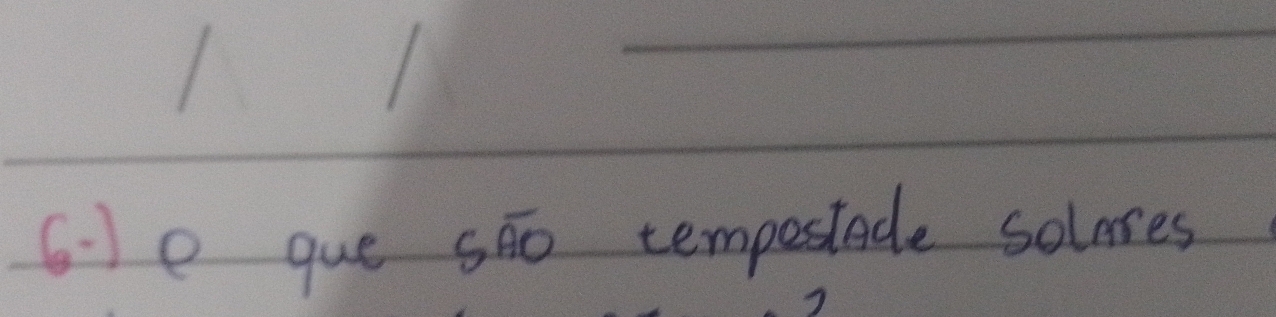 / /
6-) o que são tempestade solares
?